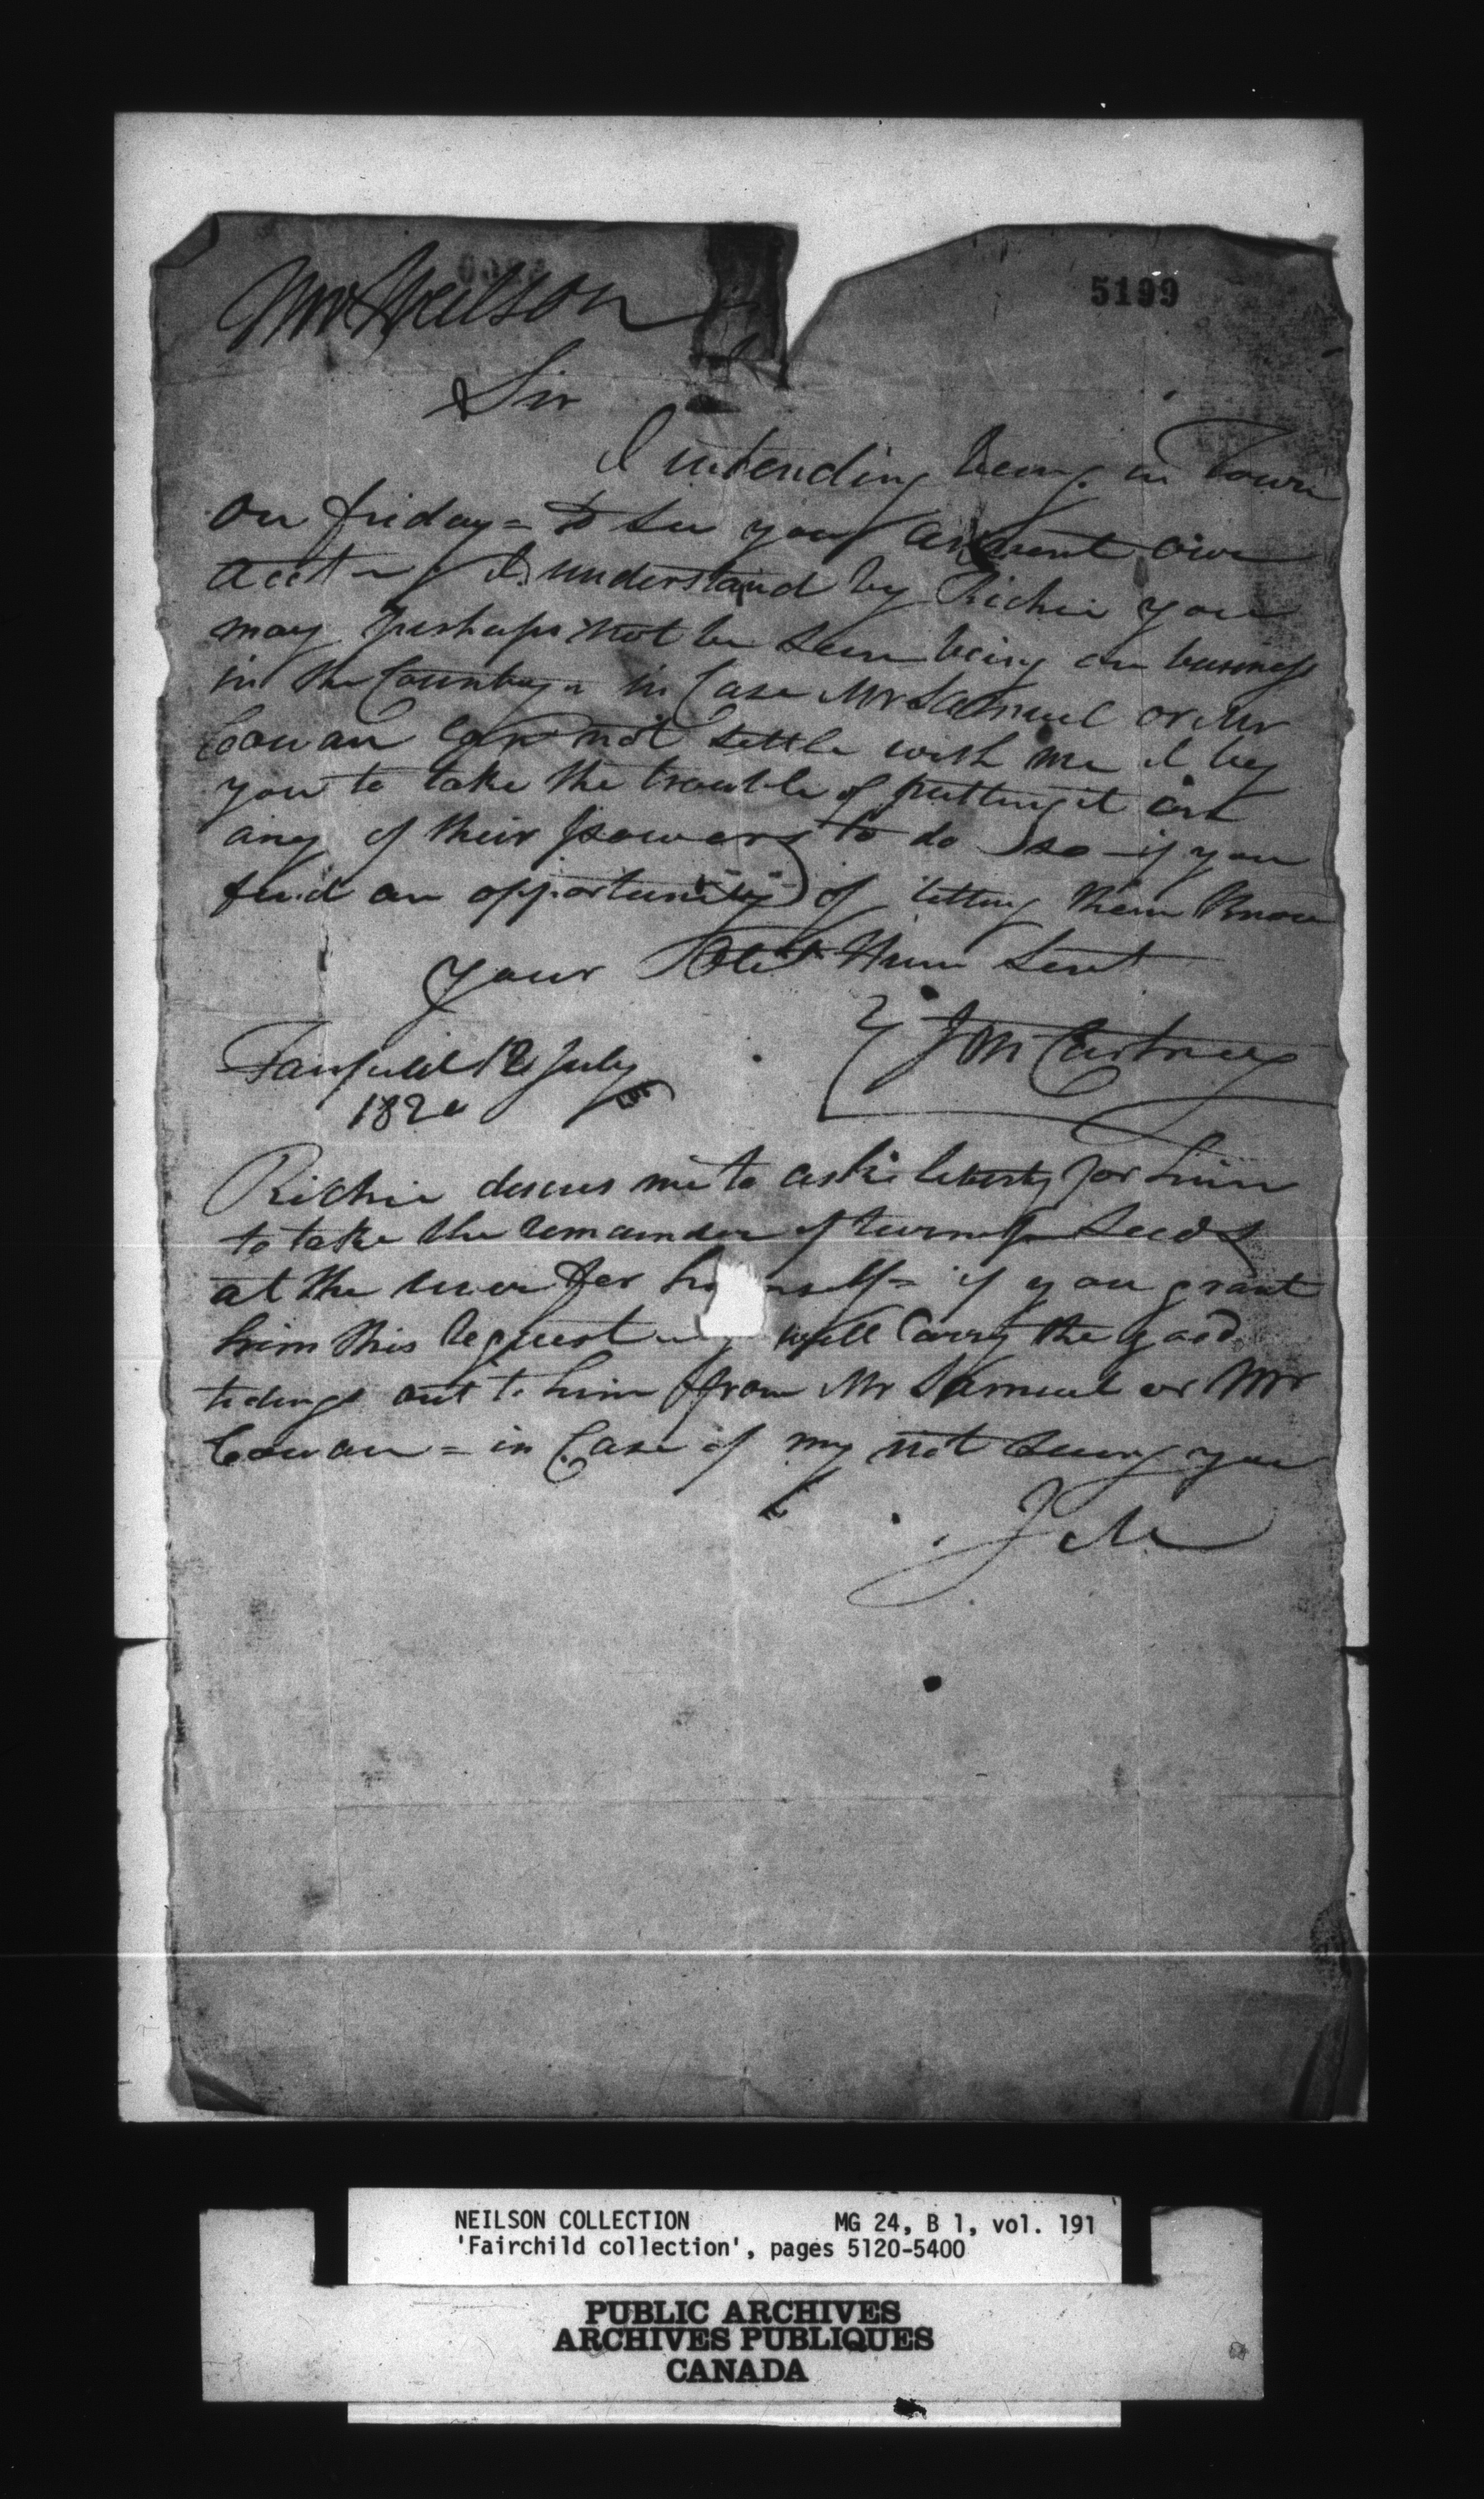 5199
Mr Neilson
Sir
I intending being in Town
on friday = to see you anent our
acct - I understand by Richie you
may perhaps not be seen being on business
in the Country = in Case Mr Samuel or Mr
Cowan can not settle with me I beg
you to take the trouble of putting it in
any of their powers to do so - if you
find an opportunity of letting them know
your Obt Hum Sert
J McCartney
12 July
1820
Richie desires me to aske liberty for him
to take the remainder of turnip Seeds
at the for himself = if you grant
him this request will Carry the good
tidings out to him from Mr Samuel or Mr
Cowan = in Case of my not seeing you
J Mc
NEILSON COLLECTION MG 24, B 1, vol. 191
'Fairchild collection', pages 5120-5400
PUBLIC ARCHIVES
ARCHIVES PUBLIQUES
CANADA